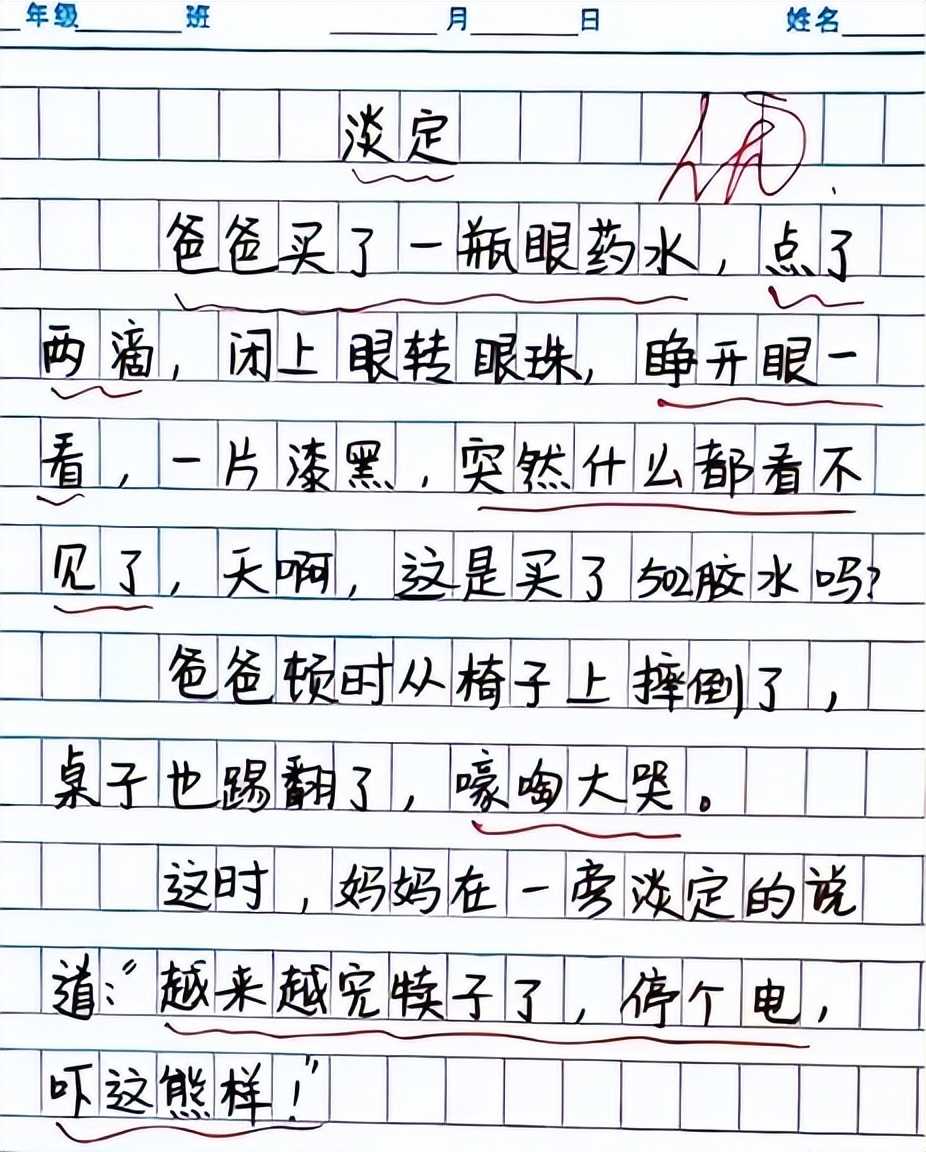 年级 班 月 日 姓名
淡定 优
爸爸买了一瓶眼药水，点了
两滴，闭上眼转眼珠，睁开眼一
看，一片漆黑，突然什么都看不
见了，天啊，这是买了502胶水吗?
爸爸顿时从椅子上摔倒了，
桌子也踢翻了，嚎啕大哭。
这时，妈妈在一旁淡定的说
道:“越来越完犊子了，停个电，
吓这熊样！”